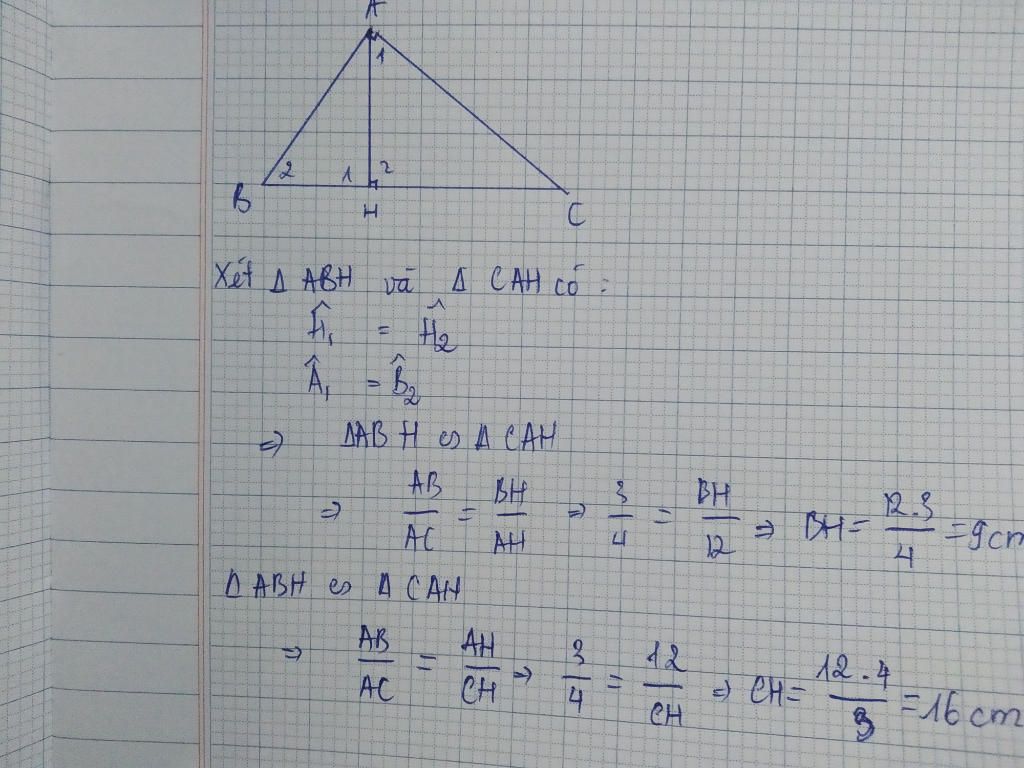 A
1
2 1 2
B H C
Xét Δ ABH và Δ CAH có :
Ĥ₁ = Ĥ₂
Â₁ = B̂₂
⇒ ΔABH ∽ Δ CAH
⇒ AB/AC = BH/AH ⇒ 3/4 = BH/12 ⇒ BH = 12.3/4 = 9cm
Δ ABH ∽ Δ CAH
⇒ AB/AC = AH/CH ⇒ 3/4 = 12/CH ⇒ CH = 12.4/3 = 16 cm